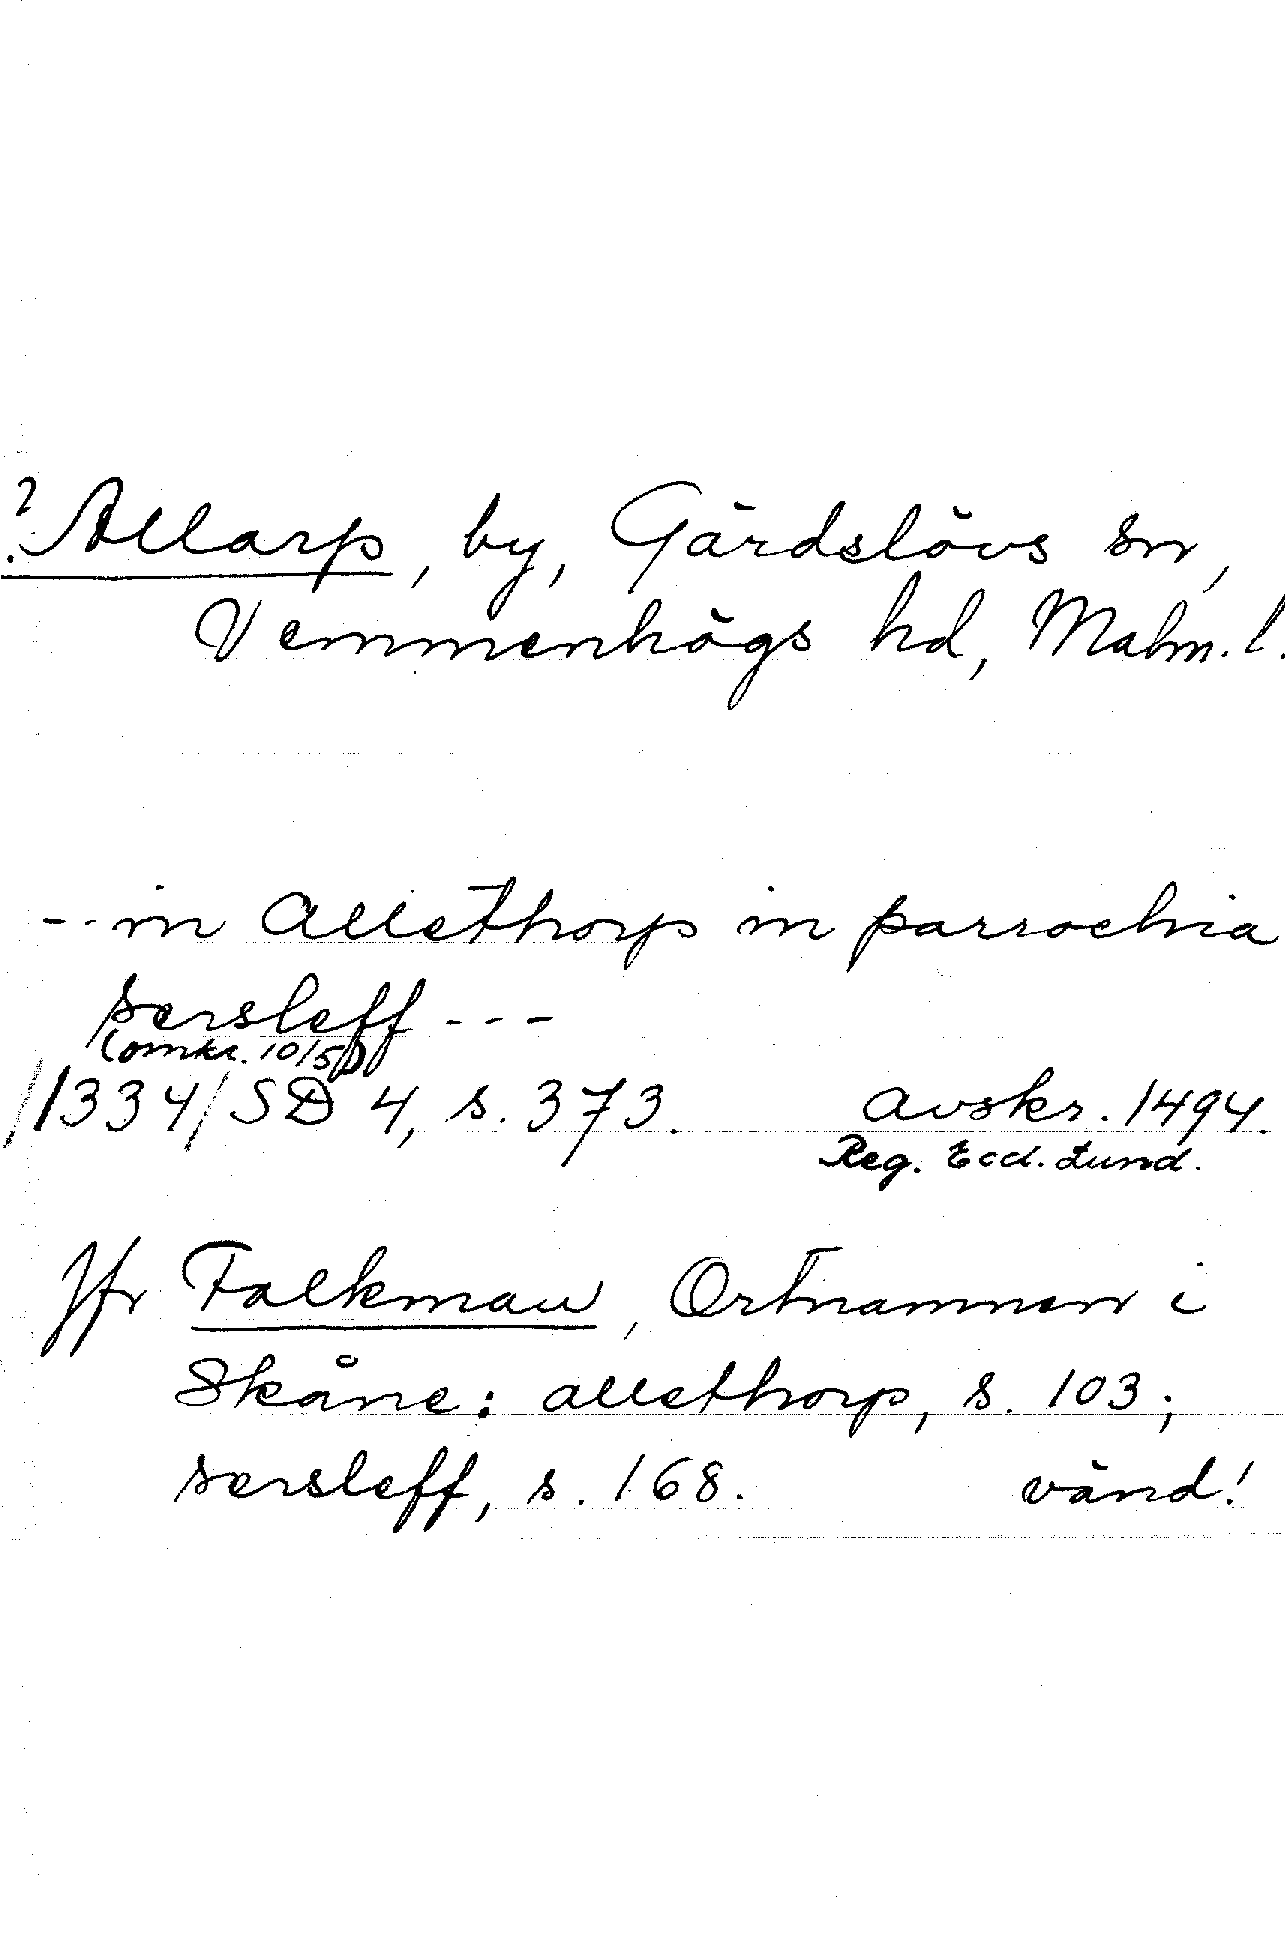 ? Allarp, by, Gärdslövs sn,
Vemmenhögs hd, Malm. l.
-- in Allethorp in parrochia
sersleff ---
(omkr. 10/5)
/1334/ SD 4, s. 373. avskr. 1494.
Reg. Eccl. Lund.
Jfr Falkman, Ortnamnen i
Skåne: allethorp, s. 103;
sersleff, s. 168. vänd!